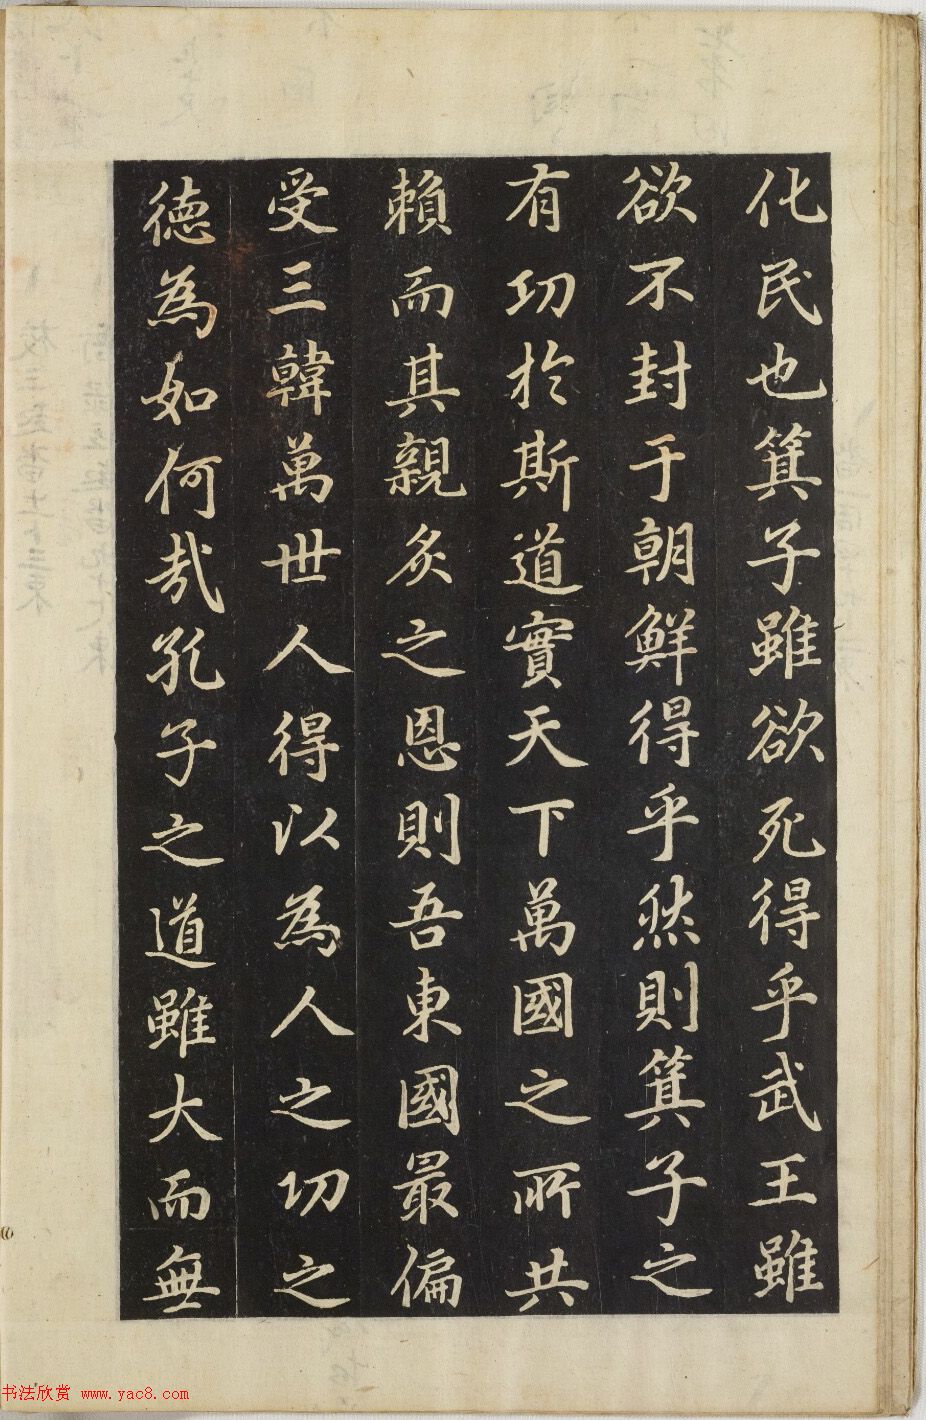 化民也箕子雖欲死得乎武王雖
欲不封于朝鮮得乎然則箕子之
有功於斯道實天下萬國之所共
賴而其親炙之恩則吾東國最偏
受三韓萬世人得以為人之功之
德為如何哉孔子之道雖大而無
书法欣赏 www.yac8.com